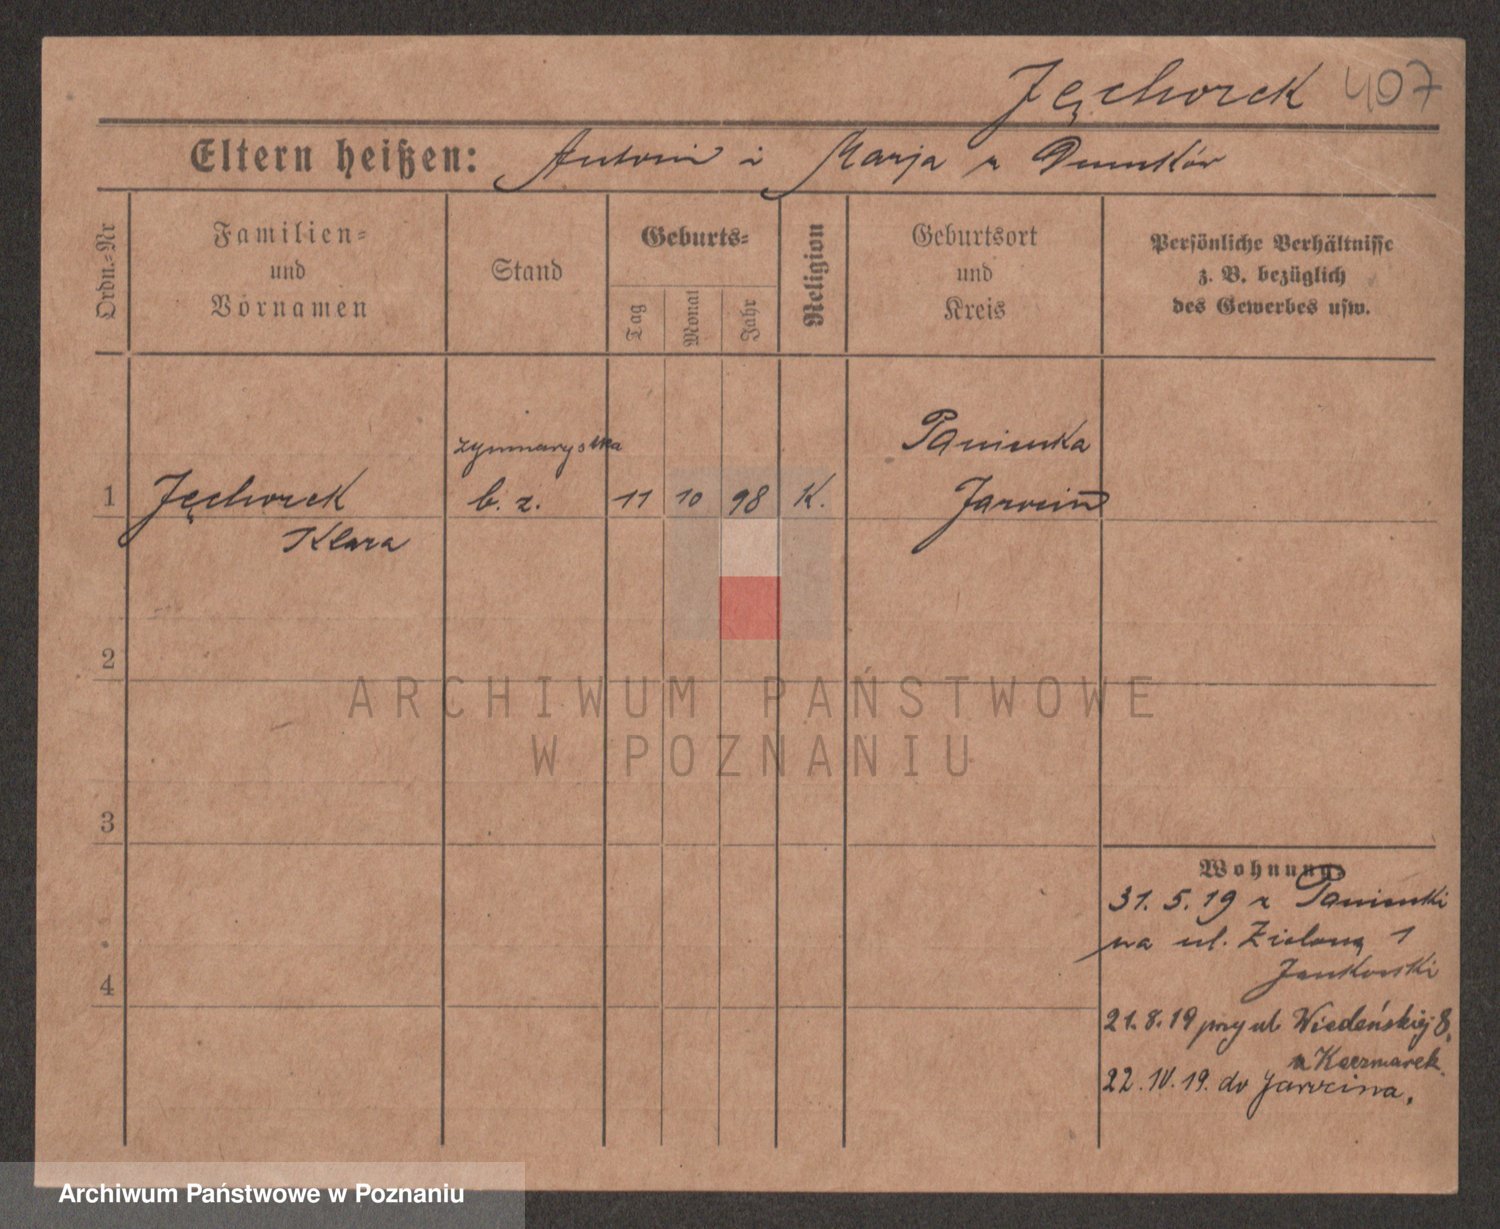 Jęchorek 407
Eltern heißen: Antoni i Marja z
Ordn.-Nr
Familien-
und
Vornamen
Stand
Geburts-
Tag
Monat
Jahr
Religion
Geburtsort
und
Kreis
Persönliche Verhältnisse
z. B. bezüglich
des Gewerbes usw.
1
Jęchorek
Klara
b. z.
11 10 98 K.
Panienka
Jarocin
2
3
4
Wohnung:
31. 5. 19 z Panienki
na ul. Zieloną 1
Jankowski
21. 8. 19 przy ul Wiedeńskiej 8,
u Kaczmarek.
22. IV. 19. do Jarocina.
ARCHIWUM PAŃSTWOWE
W POZNANIU
Archiwum Państwowe w Poznaniu